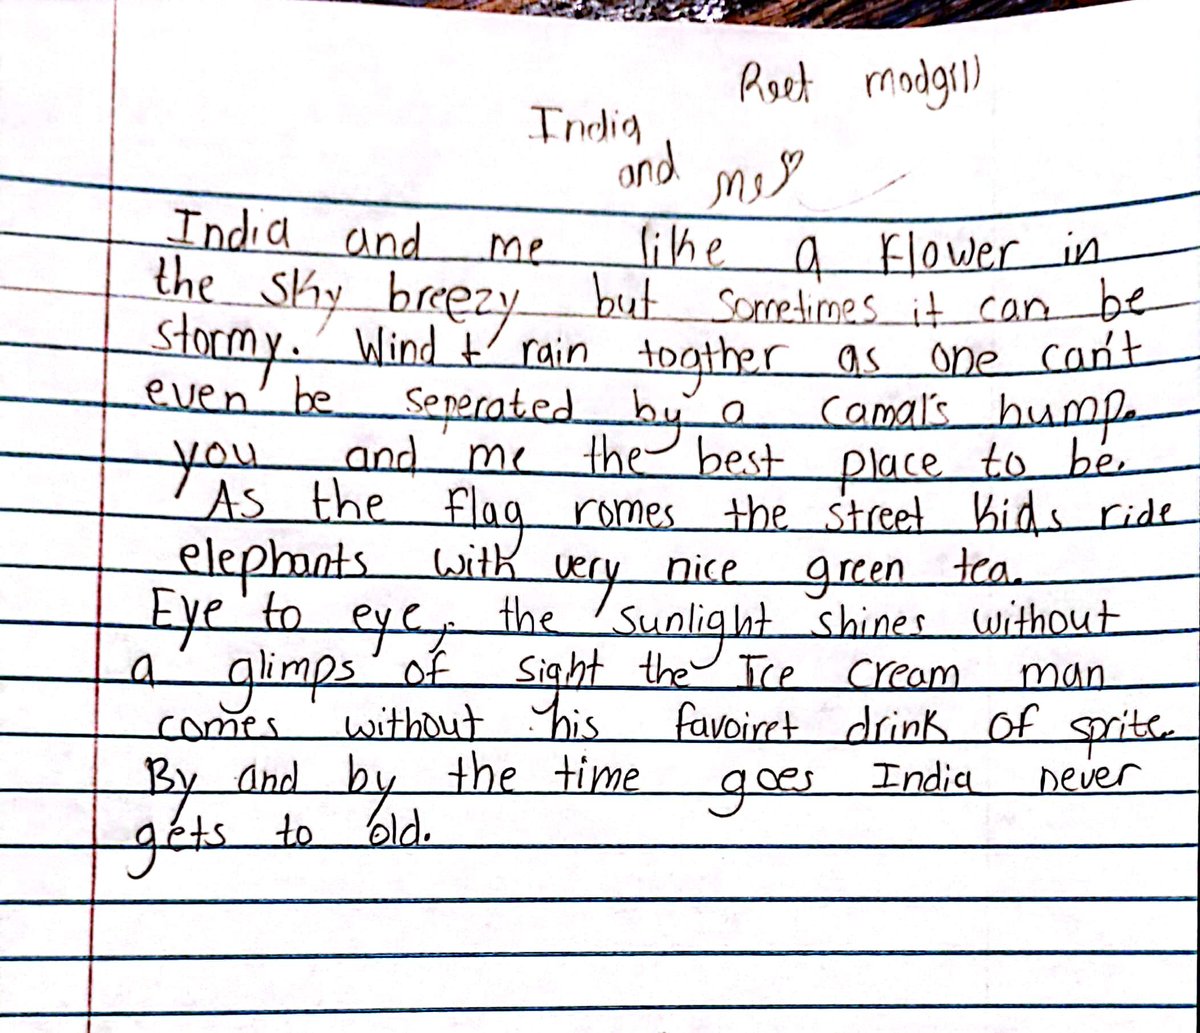 Reet modgill
India
and me
India and me like a Flower in
the sky breezy but sometimes it can be
stormy. Wind + rain togther as one can't
even be seperated by a camal's hump.
you and me the best place to be.
As the flag romes the street kids ride
elephants with very nice green tea.
Eye to eye, the sunlight shines without
a glimps of sight the Ice cream man
comes without his favoiret drink of sprite.
By and by the time goes India never
gets to old.